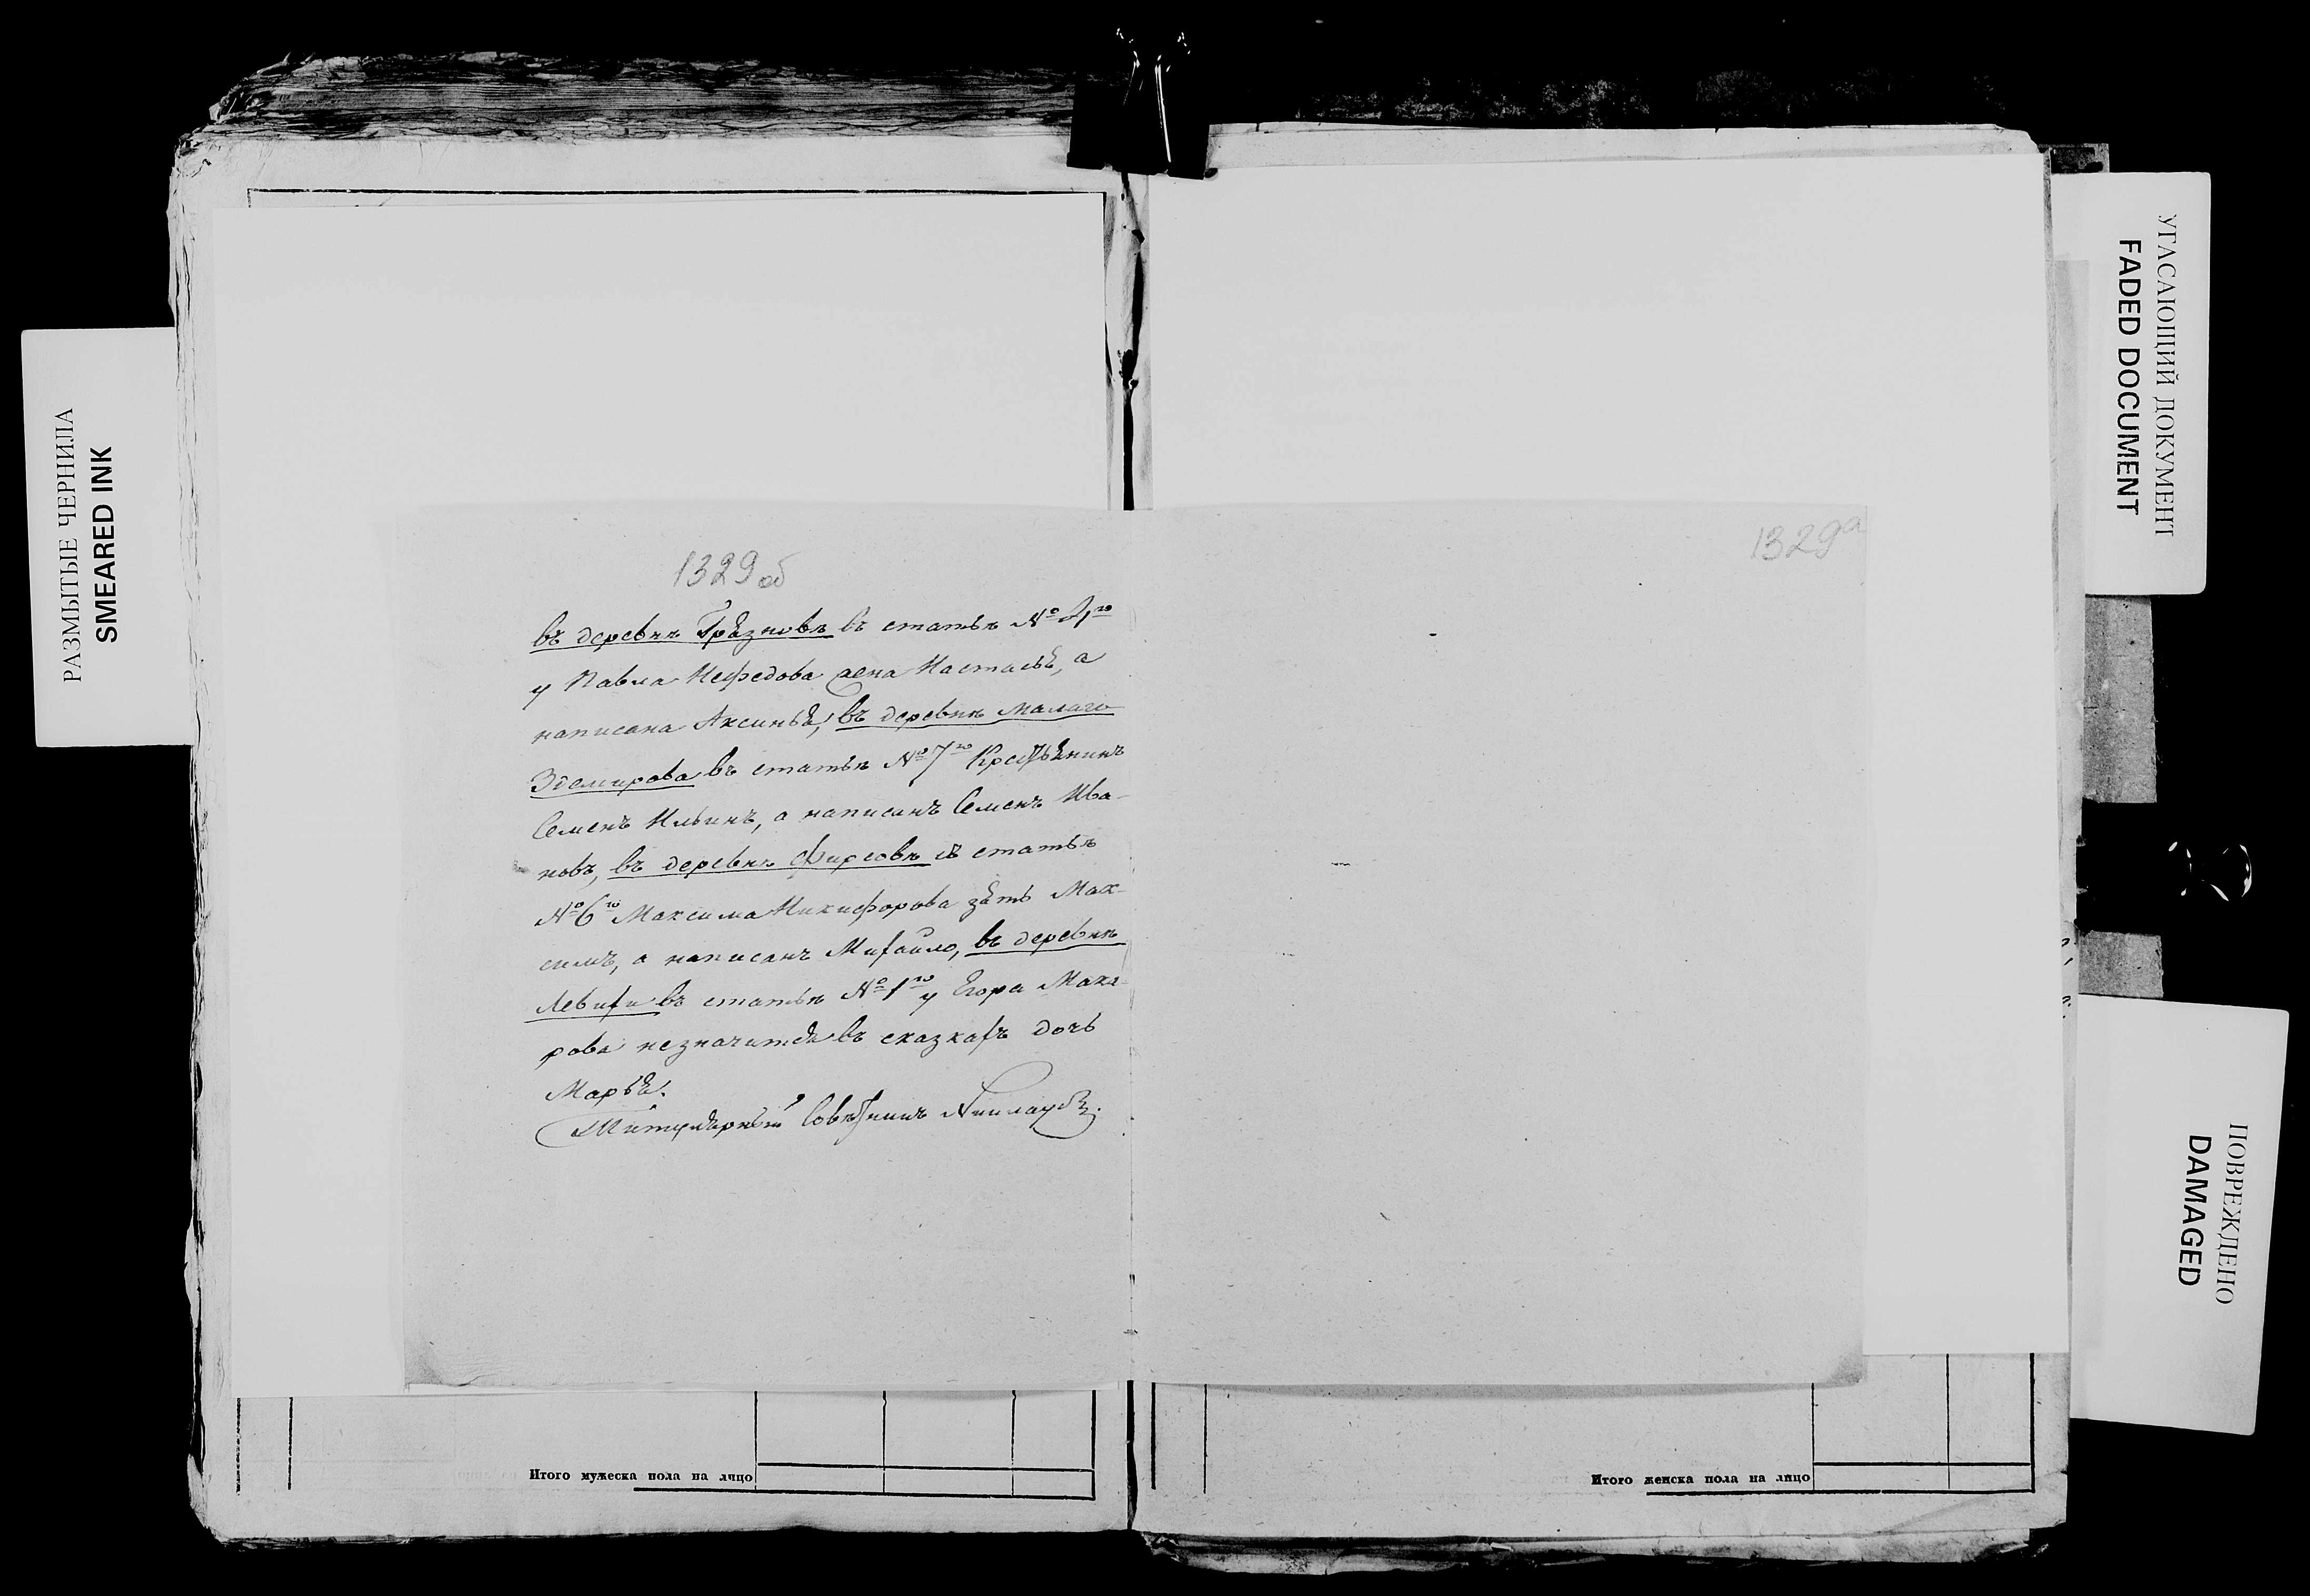 РАЗМЫТЫЕ ЧЕРНИЛА
SMEARED INK
1329 об
въ деревнѣ Грязновѣ въ статьѣ №
у Павла Нефедова жена Настасья, а
написана Аксинья, въ деревнѣ Малаго
въ статьѣ № 7го Крестьянинъ
Семенъ Ильинъ, а написанъ Семенъ Ива-
новъ, въ деревнѣ Фирсовѣ въ статьѣ
№ 6го Максима Никифорова зять Мак-
симъ, а написанъ Михайло, въ деревнѣ
Левихи въ статьѣ № 1го у Егора Мака-
рова незначится въ сказкахъ дочь
Марья.
Титулярный Совѣтникъ
Итого мужеска пола на лицо
1329а
Итого женска пола на лицо
УГАСАЮЩИЙ ДОКУМЕНТ
FADED DOCUMENT
ПОВРЕЖДЕНО
DAMAGED